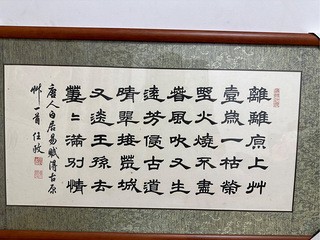 離離原上艸
壹歲一枯榮
野火燒不盡
春風吹又生
遠芳侵古道
晴翠接荒城
又送王孫去
萋〻滿別情
唐人白居易賦得古原
艸一首 任牧